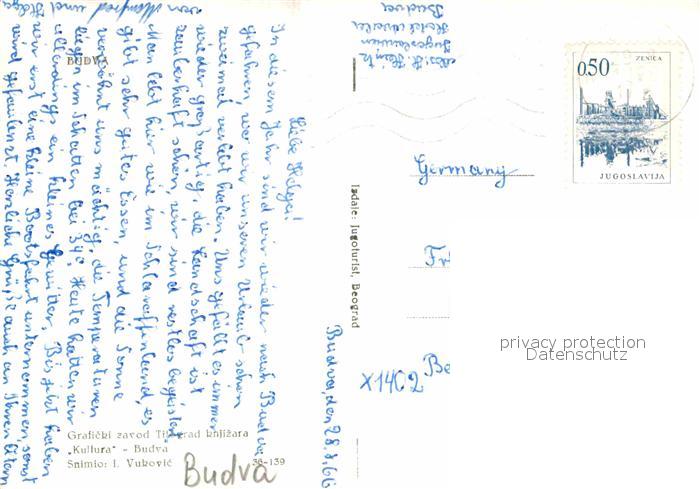 BUDVA
Liebe Helga!
In diesem Jahr sind wir wieder nach Budva
gefahren, wo wir unseren Urlaub schon
zweimal verlebt haben. Uns gefällt es immer
wieder großartig, die Landschaft ist
zauberhaft schön, wir sind restlos begeistert.
Man lebt hier wie im Schlaraffenland, es
gibt sehr gutes Essen, und die Sonne
verwöhnt uns mächtig, die Temperaturen
liegen im Schatten bei 34°. Heute hatten wir
allerdings ein kleines Gewitter. Bis jetzt haben
wir erst eine kleine Bootsfahrt unternommen, sonst
wird gefaulenzt. Herzliche Grüße auch an Ihren Eltern
von Manfred und Helga
Grafički zavod Titograd knjižara
„Kultura" - Budva
Snimio: I. Vuković 36-139
Budva
Izdaje: Jugoturist, Beograd
Budva, den 28.8.66
Budva
Jugoslawien
Germany
Fr
Be
X1402
0.50
ZENICA
JUGOSLAVIJA
privacy protection
Datenschutz